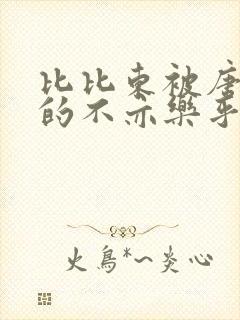 比比东被唐
的不亦乐乎
火鸟*~炎心